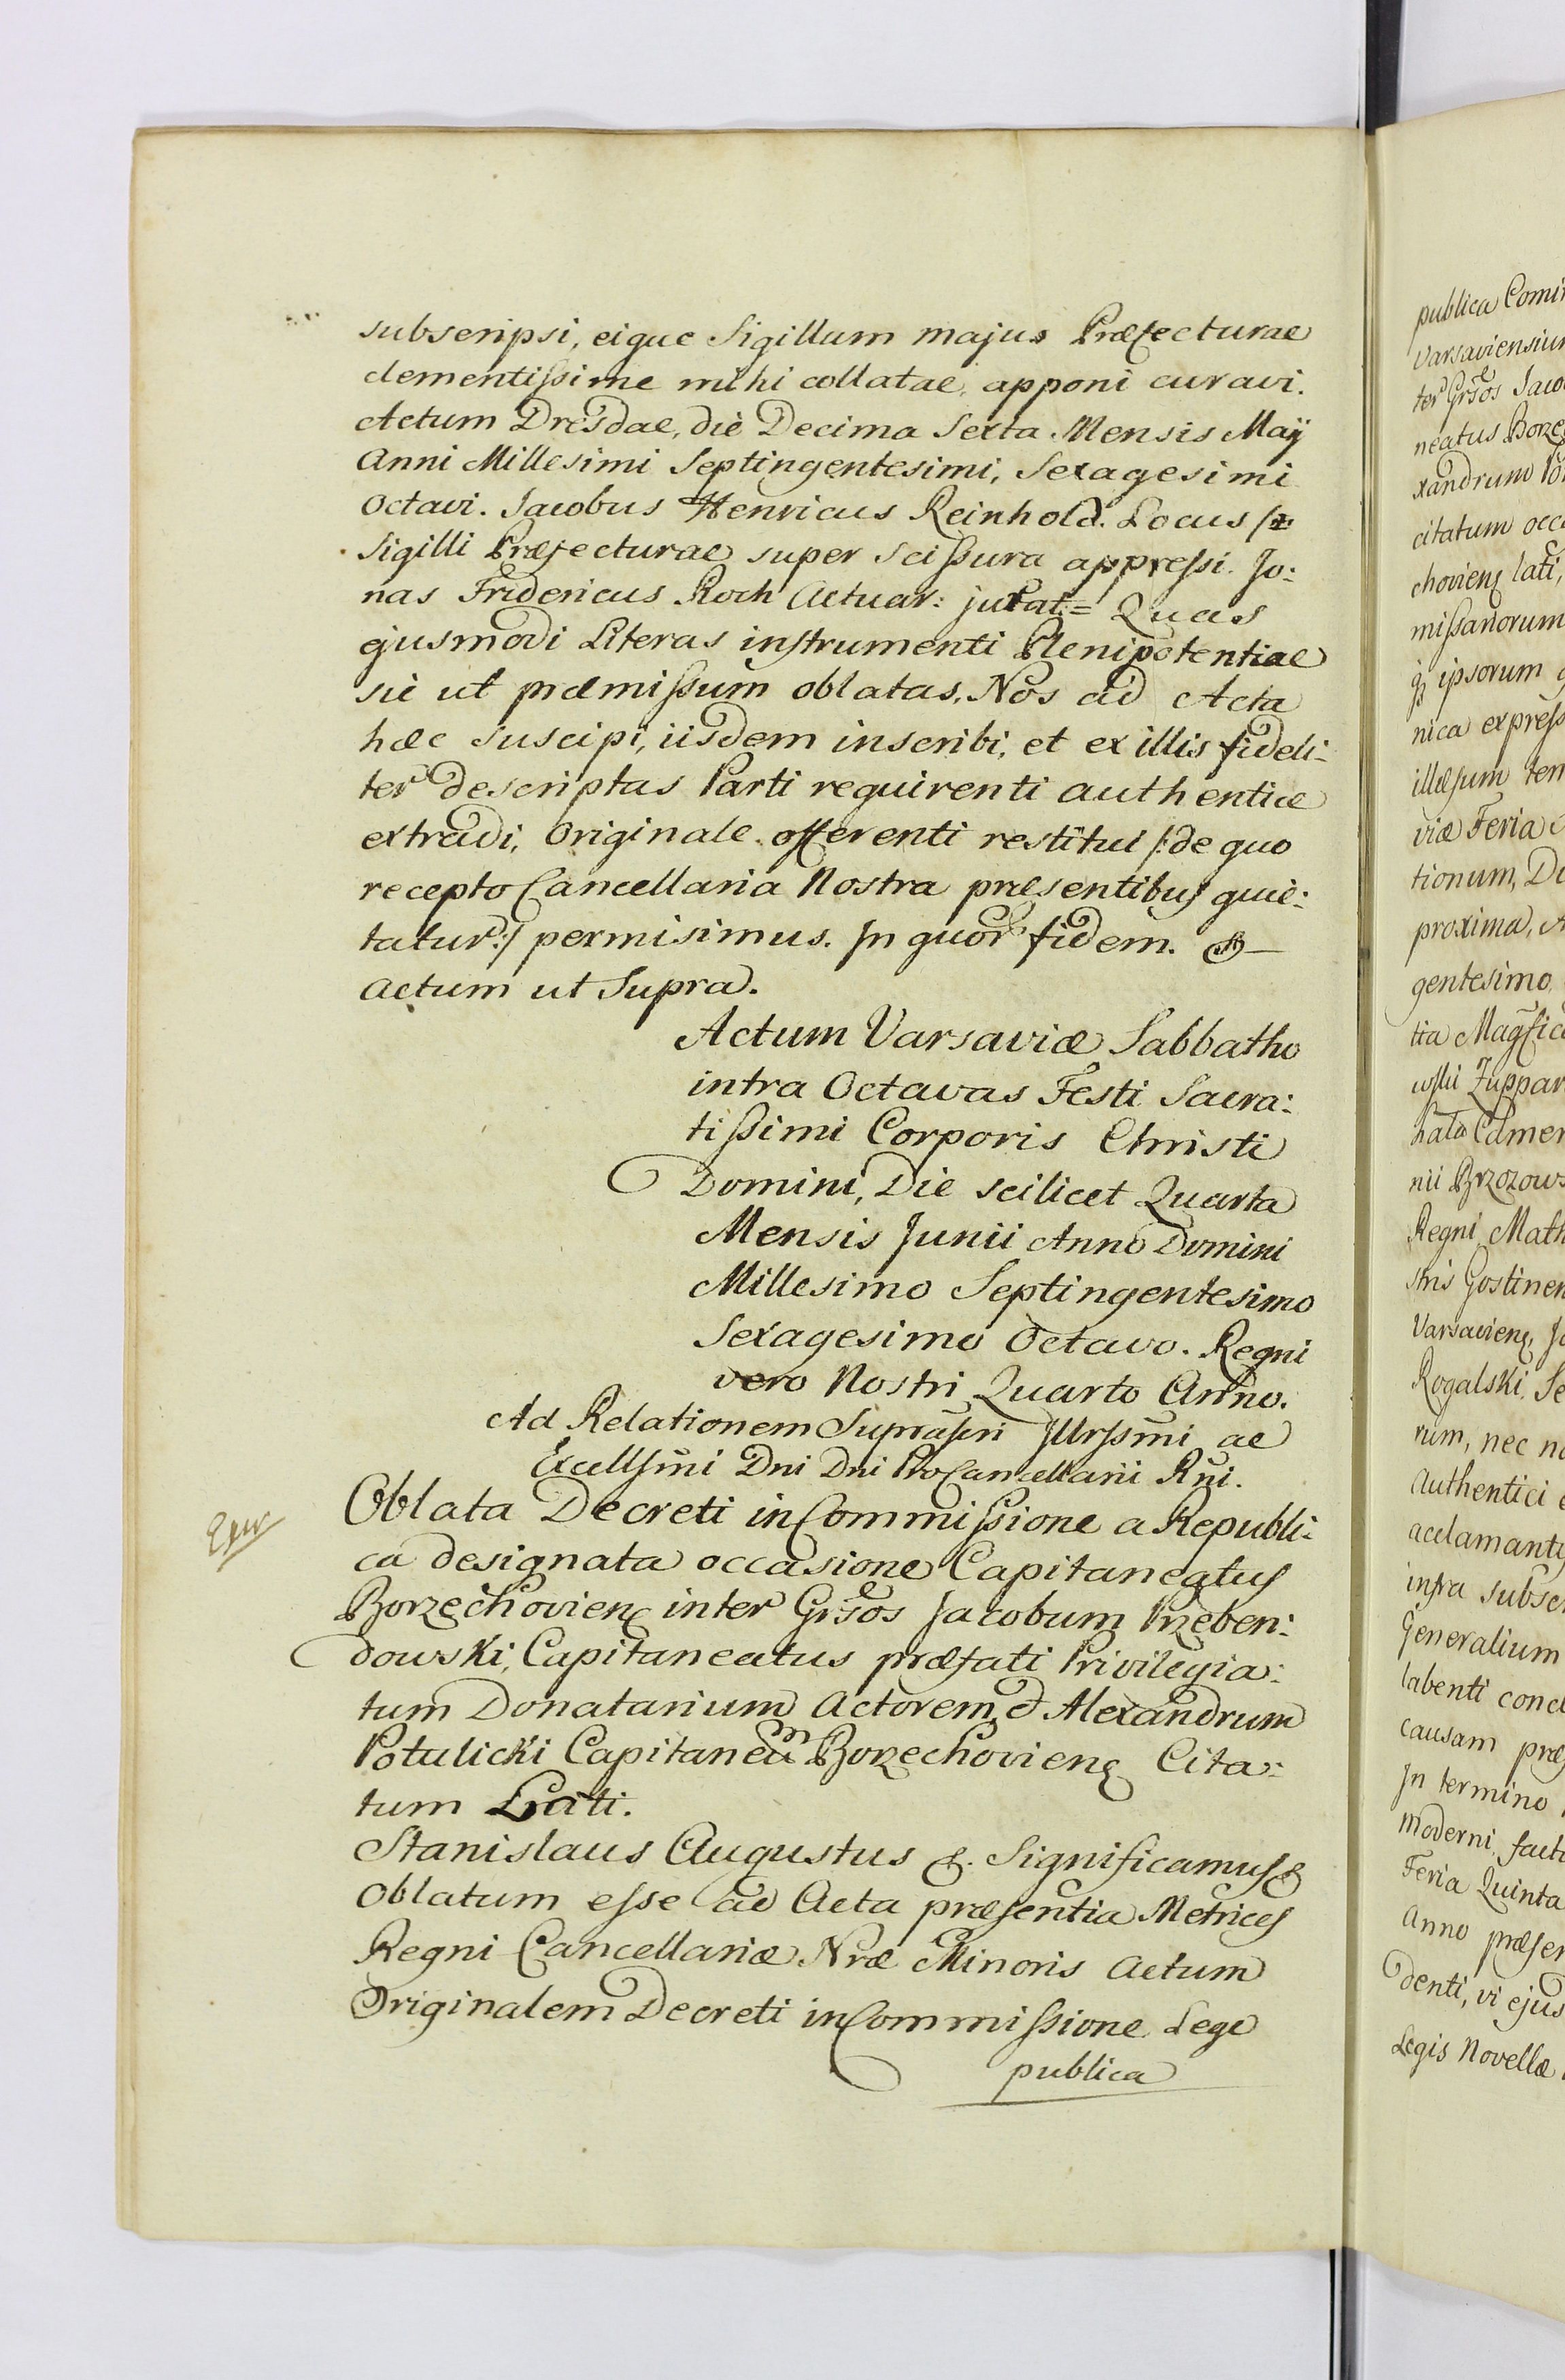 subscripsi, eique Sigillum majus Præfecturae
clementissime mihi collatae, apponi curavi.
Actum Dresdae, die Decima Sexta Mensis Maÿ
Anni Millesimi Septingentesimi, Sexagesimi
Octavi. Jacobus Henricus Reinhold. Locus
Sigilli Præfecturae super Scissura appressi. Jo:
nas Fridericus Koch Actuar: jurat= Quas
ejusmodi Literas instrumenti Plenipotentiae
sic ut præmissum oblatas, Nos ad Acta
hæc suscipi, iisdem inscribi, et ex illis fideli:
ter descriptas Parti requirenti authentice
extradi, Originale offerenti restitui /:de quo
recepto Cancellaria Nostra præsentibus quie:
tatur:/ permisimus. In quor fidem. &
Actum ut Supra.
Actum Varsaviæ Sabbatho
intra Octavas Festi Sacra:
tissimi Corporis Christi
Domini, Die scilicet Quarta
Mensis Junii Anno Domini
Millesimo Septingentesimo
Sexagesimo Octavo. Regni
vero Nostri Quarto Anno.
Ad Relationem Suprascri Illrssmi ac
Excellsmi Dni Dni ProCancellarii Rni.
Oblata Decreti in Commissione a Republi:
ca designata occasione Capitaneatus
Borzechovienę inter Grsos Jacobum Przeben:
dowski, Capitaneatus præfati Privilegia:
tum Donatarium Actorem, & Alexandrum
Potulicki Capitaneum Borzechovienę Cita:
tum Lati.
Stanislaus Augustus &. Significamus &
Oblatum esse ad Acta præsentia Metrices
Regni Cancellariæ Nræ Minoris Actum
Originalem Decreti in Commissione Lege
publica
publica Comi
Varsaviensiu
ter Grsos Jaco
neatus Borze
xandrum Po
citatum occ
chovienę lati,
missariorum
ipsorum
nica express
illæsum ten
viæ Feria
tionum, D
proxima, A
gentesimo
tia Magfic
Zuppar
Camer
nii Brzozows
Regni, Math
stris Gostinen
Varsavienę, J
Rogalski, Se
rum, nec n
Authentici
acclamant
infra subsc
Generalium
labenti concl
causam præ
In termino
moderni, fact
Feria Quinta
Anno præsen
denti, vi ejus
Legis Novellæ